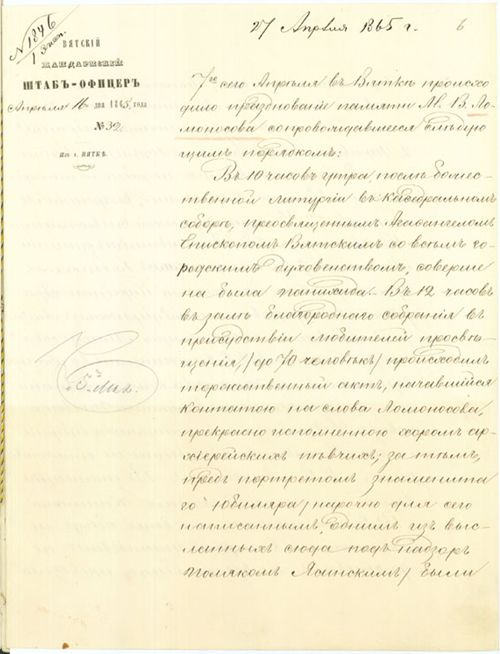 27 Апреля 1865 г.
6
N 1846
1 Экз.
ВЯТСКІЙ
ЖАНДАРМСКІЙ
ШТАБЪ-ОФИЦЕРЪ
Апрѣля 16 дня 1865 года
№ 32
Въ г. ВЯТКѢ.
7го сего Апрѣля въ Вяткѣ происхо
дило празднованіе памяти М. В. Ло-
моносова сопровождавшееся слѣдую
щимъ порядкомъ:
Въ 10 часовъ утра, послѣ божес-
твенной литургіи въ Кафедральномъ
соборѣ, преосвященнымъ Агафангеломъ
Епископомъ Вятскимъ со всѣмъ го-
родскимъ духовенствомъ, соверше
на была панихида. Въ 12 часовъ
въ залѣ благороднаго собранія въ
присудствіи любителей просвѣ-
щенія, /до 70 человѣкъ/ происходилъ
торжественный актъ, начавшійся
контатою на слова Ломоносова,
прекрасно исполненною хоромъ ар-
хіерейскихъ пѣвчихъ; за тѣмъ,
предъ портретомъ знаменита
го юбиляра /нарочно для сего
написаннымъ, однимъ изъ выс-
ланныхъ сюда подъ надзоръ
полякомъ Ясинскимъ/ были